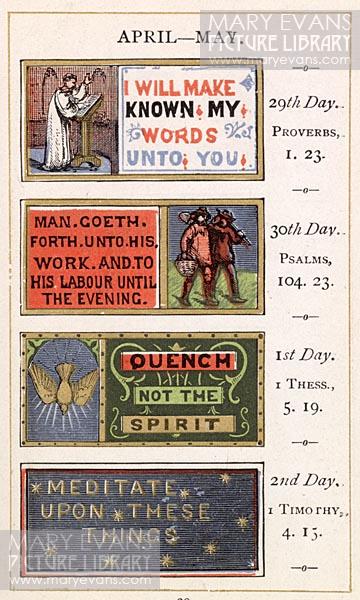 MARY EVANS
PICTURE LIBRARY
www.maryevans.com
APRIL—MAY.
I WILL MAKE
KNOWN MY
WORDS
UNTO YOU
29th Day.
PROVERBS,
1. 23.
MAN. GOETH.
FORTH. UNTO. HIS.
WORK. AND. TO
HIS LABOUR UNTIL
THE EVENING.
30th Day.
PSALMS,
104. 23.
QUENCH
NOT THE
SPIRIT
1st Day.
1 THESS.,
5. 19.
MEDITATE
UPON THESE
THINGS
2nd Day.
1 TIMOTHY,
4. 15.
MARY EVANS
PICTURE LIBRARY
www.maryevans.com